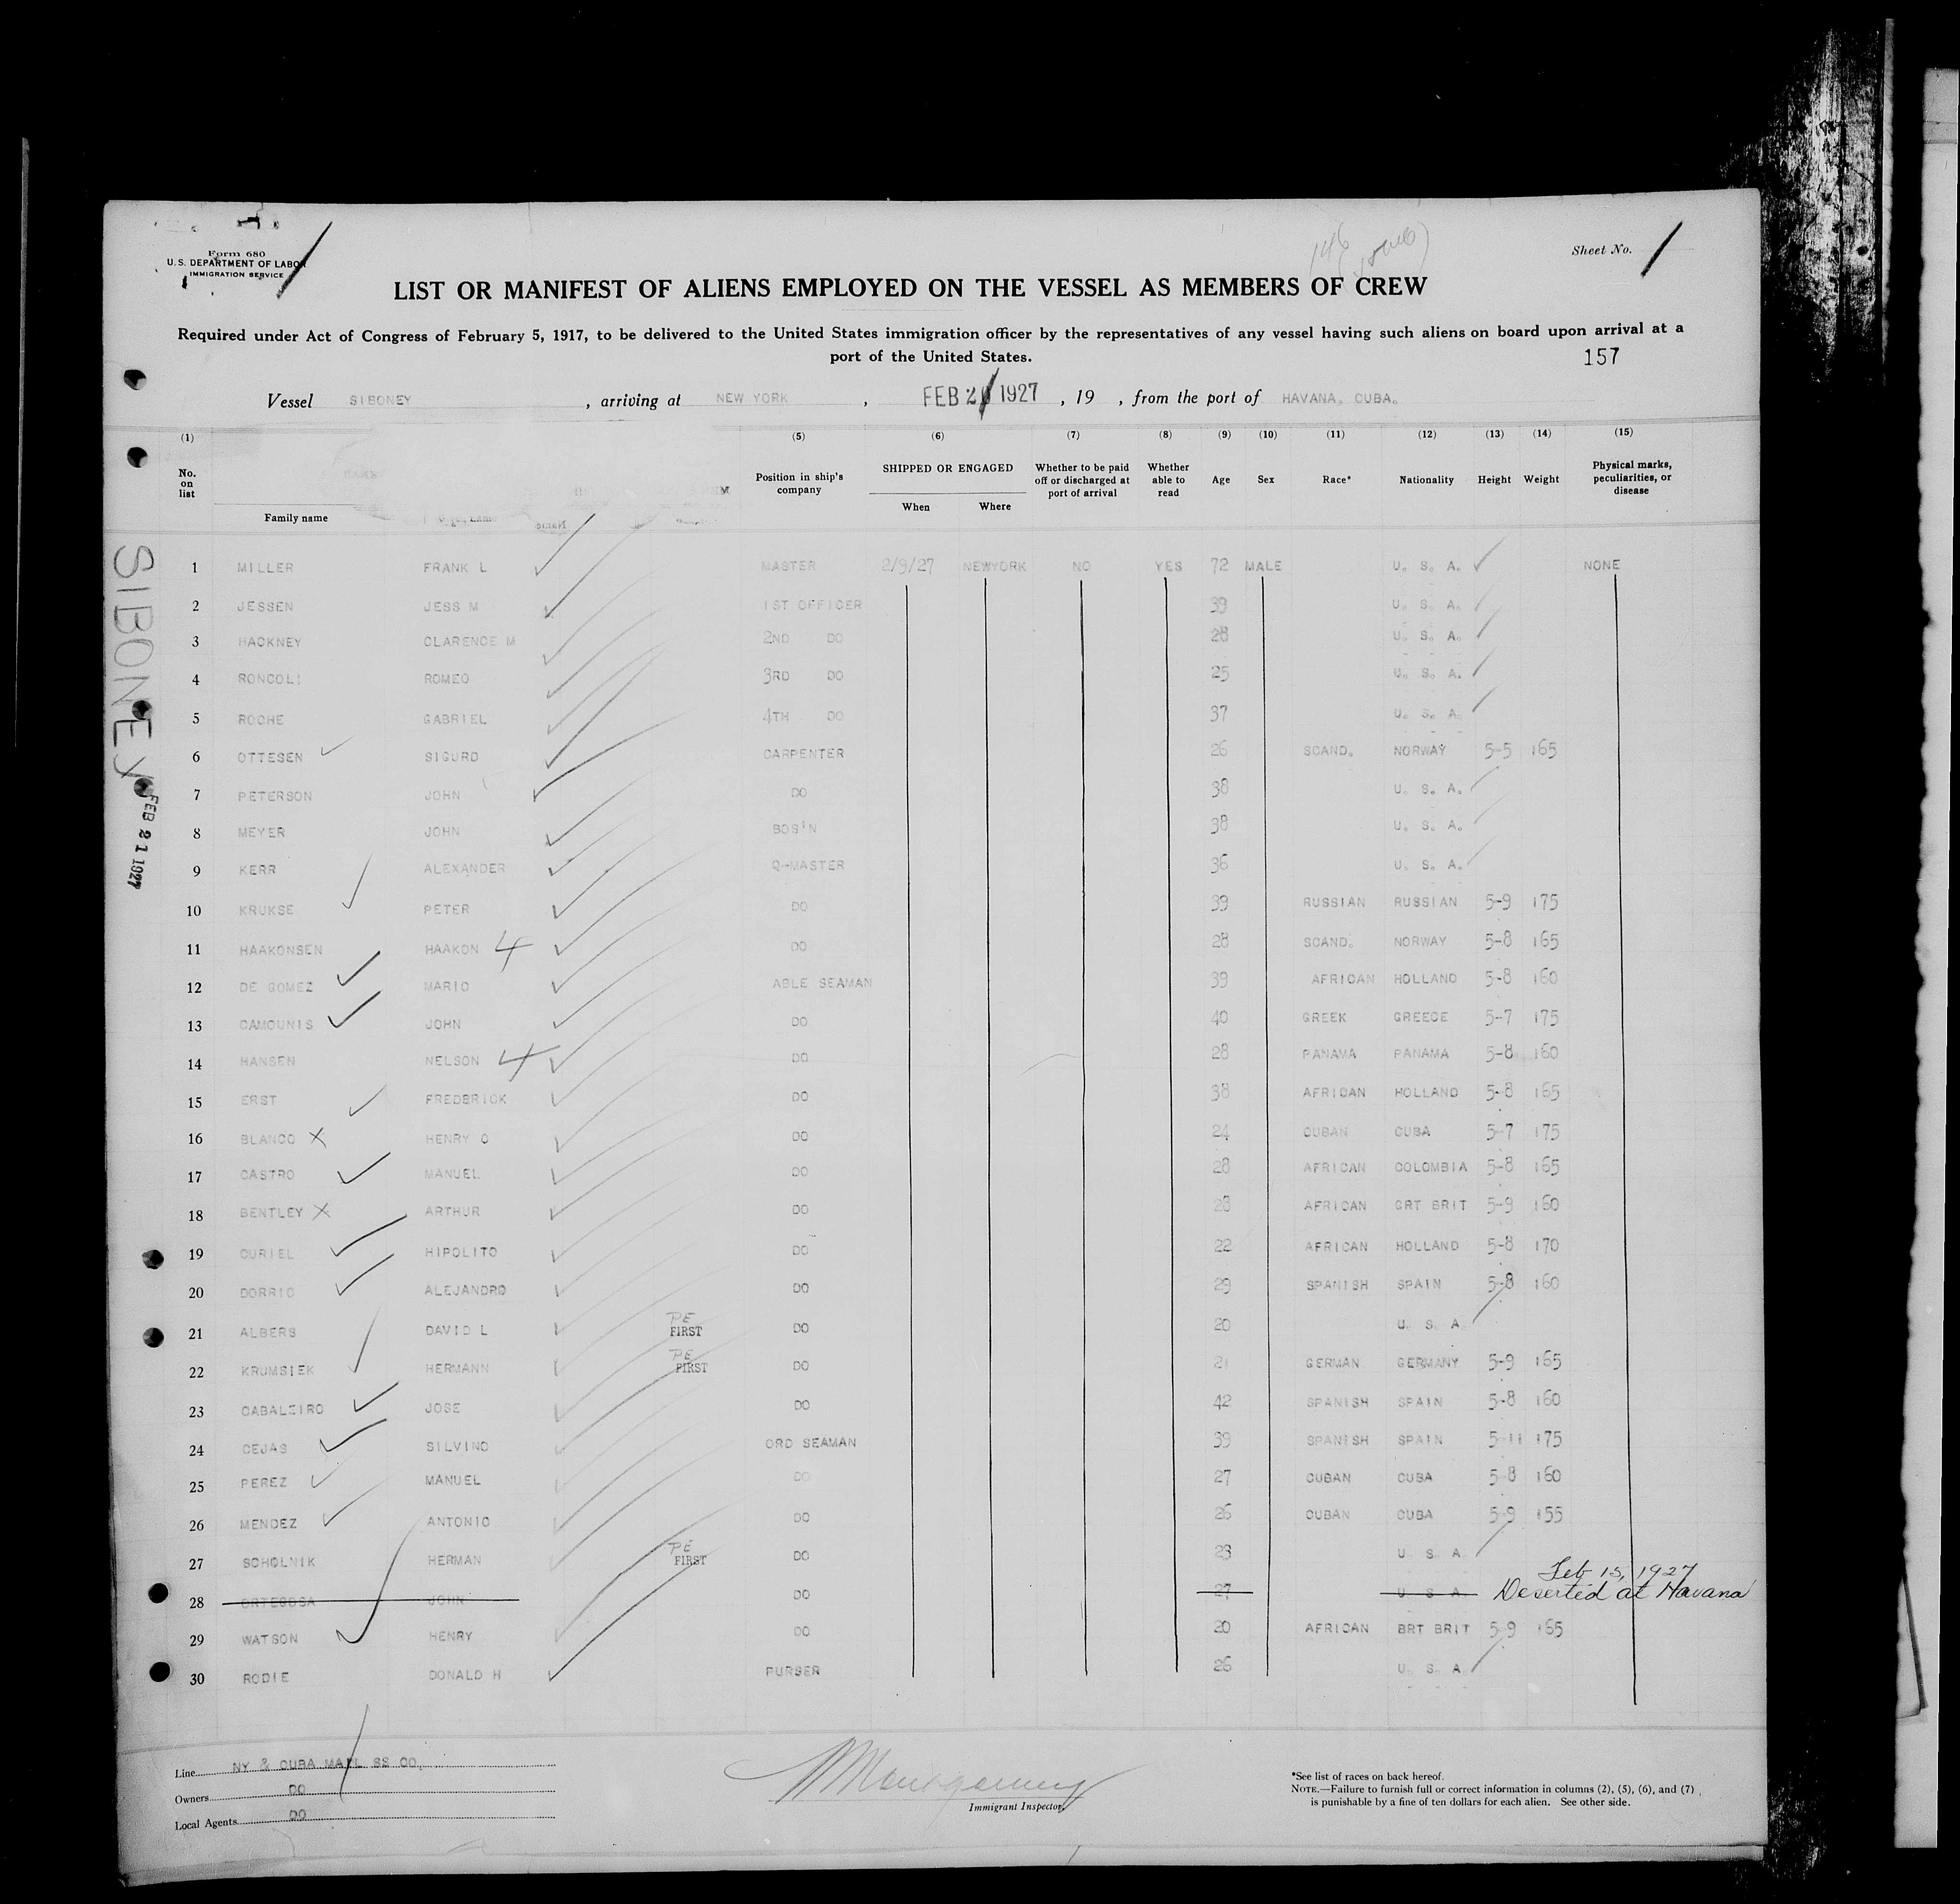 Form 680
U.S. DEPARTMENT OF LABOR
IMMIGRATION SERVICE
Sheet No. 1
LIST OR MANIFEST OF ALIENS EMPLOYED ON THE VESSEL AS MEMBERS OF CREW
Required under Act of Congress of February 5, 1917, to be delivered to the United States immigration officer by the representatives of any vessel having such aliens on board upon arrival at a
port of the United States.
157
Vessel SIBONEY, arriving at NEW YORK, FEB 21 1927, 19 , from the port of HAVANA, CUBA.
(1) (5) (6) (7) (8) (9) (10) (11) (12) (13) (14) (15)
No. on list Family name Position in ship's company SHIPPED OR ENGAGED When Where Whether to be paid off or discharged at port of arrival Whether able to read Age Sex Race* Nationality Height Weight Physical marks, peculiarities, or disease
SIBONEY
FEB 21 1927
1 MILLER FRANK L MASTER 2/9/27 NEWYORK NO YES 72 MALE U. S. A. NONE
2 JESSEN JESS M 1ST OFFICER 39 U. S. A.
3 HACKNEY CLARENCE M 2ND DO 28 U. S. A.
4 RONCOLI ROMEO 3RD DO 25 U. S. A.
5 ROCHE GABRIEL 4TH DO 37 U. S. A.
6 OTTESEN SIGURD CARPENTER 26 SCAND. NORWAY 5-5 165
7 PETERSON JOHN DO 38 U. S. A.
8 MEYER JOHN BOS'N 38 U. S. A.
9 KERR ALEXANDER Q-MASTER 36 U. S. A.
10 KRUKSE PETER DO 39 RUSSIAN RUSSIAN 5-9 175
11 HAAKONSEN HAAKON 4 DO 28 SCAND. NORWAY 5-8 165
12 DE GOMEZ MARIO ABLE SEAMAN 39 AFRICAN HOLLAND 5-8 160
13 CAMOUNIS JOHN DO 40 GREEK GREECE 5-7 175
14 HANSEN NELSON 4 DO 28 PANAMA PANAMA 5-8 160
15 ERST FREDERICK DO 38 AFRICAN HOLLAND 5-8 165
16 BLANCO X HENRY O DO 24 CUBAN CUBA 5-7 175
17 CASTRO MANUEL DO 28 AFRICAN COLOMBIA 5-8 165
18 BENTLEY X ARTHUR DO 28 AFRICAN GRT BRIT 5-9 160
19 CURIEL HIPOLITO DO 22 AFRICAN HOLLAND 5-8 170
20 DORRIO ALEJANDRO DO 29 SPANISH SPAIN 5-8 160
21 ALBERS DAVID L PE FIRST DO 20 U. S. A.
22 KRUMSIEK HERMANN PE FIRST DO 21 GERMAN GERMANY 5-9 165
23 CABALEIRO JOSE DO 42 SPANISH SPAIN 5-8 160
24 CEJAS SILVINO ORD SEAMAN 39 SPANISH SPAIN 5-11 175
25 PEREZ MANUEL DO 27 CUBAN CUBA 5-8 160
26 MENDEZ ANTONIO DO 26 CUBAN CUBA 5-9 155
27 SCHOLNIK HERMAN PE FIRST DO 23 U. S. A.
28 ORTEGOSA JOHN DO 27 U. S. A. Feb 15, 1927 Deserted at Havana
29 WATSON HENRY DO 20 AFRICAN BRT BRIT 5-9 165
30 RODIE DONALD H PURSER 26 U. S. A.
Line NY & CUBA MAIL SS CO.
Owners DO
Local Agents DO
Montgomery
Immigrant Inspector.
*See list of races on back hereof.
NOTE.—Failure to furnish full or correct information in columns (2), (5), (6), and (7)
is punishable by a fine of ten dollars for each alien. See other side.